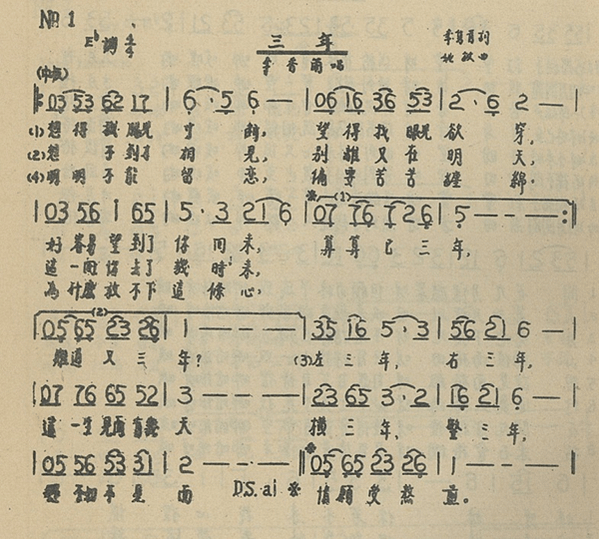 No 1
E♭調 4/4
三年
李香蘭唱
(中板)
|: 03 53 62 17 | 6·5 6 — | 06 16 36 53 | 2·6 2 — |
(1) 想得我腸兒寸斷, 望得我眼兒欲穿,
(2) 想不到才相見, 別離又在明天,
(4) 明明不能留戀, 偏要苦苦纏綿,
| 03 56 i 65 | 5·3 21 6 | (1) 07 76 7 26 | 5 — — — :|
好容易望到了你回來, 算算已三年,
這一回你去了幾時來,
為什麼放不下這條心,
(2) 05 65 23 26 | 1 — — — | 35 16 5·3 | 56 21 6 — |
難道又三年? (3) 左三年, 右三年,
| 07 76 65 52 | 3 — — — | 23 65 3·2 | 16 21 6 — |
這一生見面有幾天 橫三年, 豎三年,
| 05 56 53 31 | 2 — — — || 05 65 23 26 | 1 — — — ||
面 D.S. al ※ 情願受熬煎。